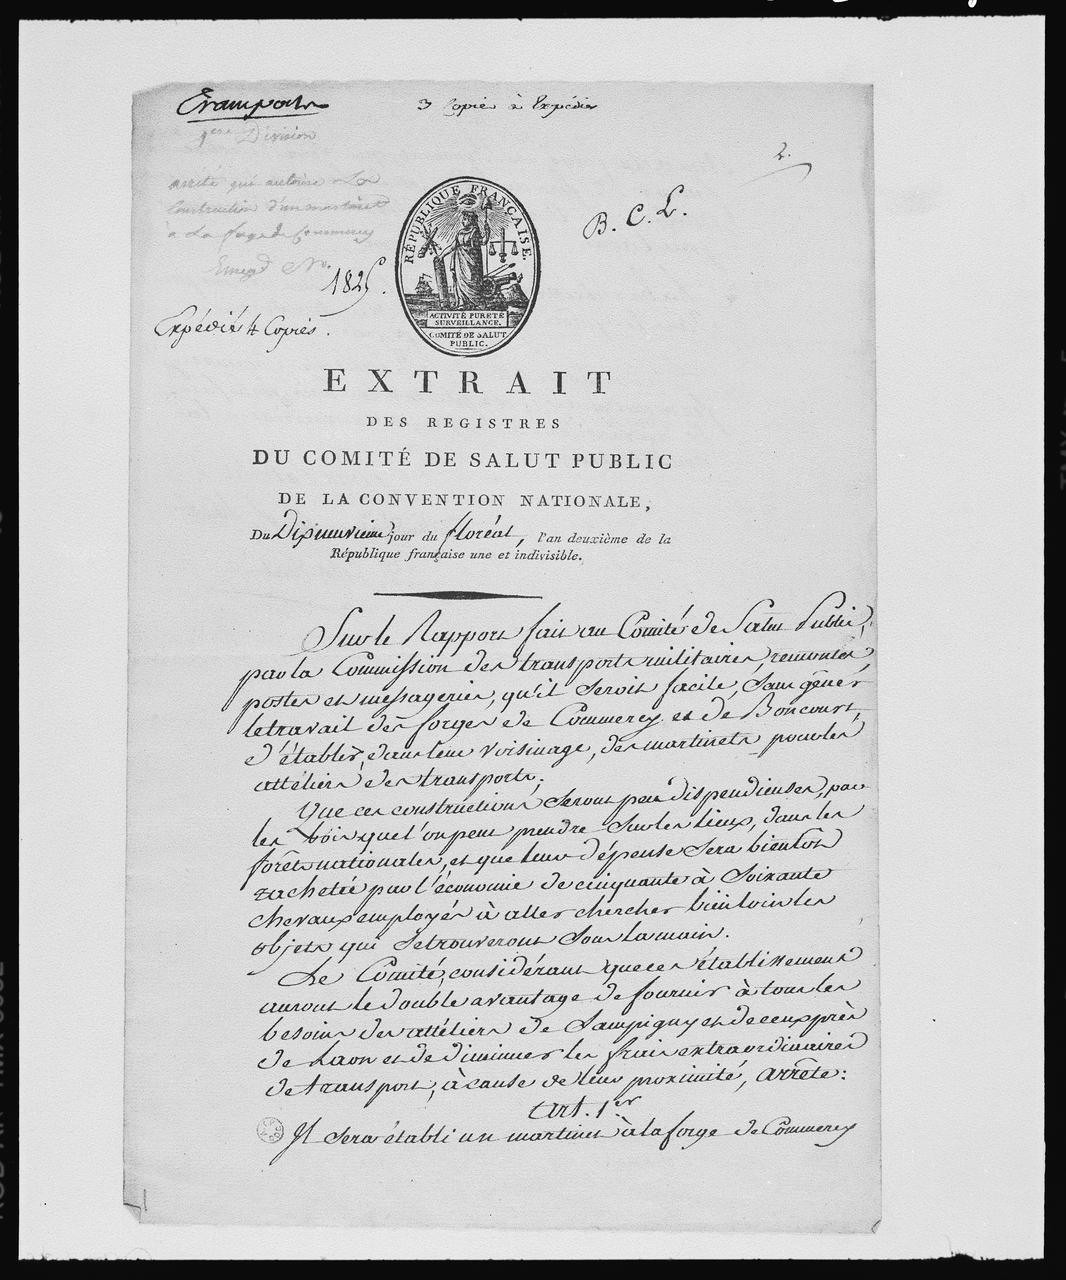 Transports
3 Copies à Expédier
1ere Division
2.
arrêté qui autorise La
Construction d'un martinet
à La forge de Commercy
B. C. L.
Enregé No.
1825.
Expédié 4 Copies.
RÉPUBLIQUE FRANÇAISE.
ACTIVITÉ PURETÉ
SURVEILLANCE.
COMITÉ DE SALUT
PUBLIC.
EXTRAIT
DES REGISTRES
DU COMITÉ DE SALUT PUBLIC
DE LA CONVENTION NATIONALE,
Du Dixneuvieme jour du floréal, l'an deuxième de la
République française une et indivisible.
Sur le Rapport fait au Comité de Salut Public,
par la Commission des transports militaires, remontes
postes et messageries, qu'il seroit facile, sans gêner
le travail des forges de Commercy et de Boncourt,
d'établir, dans leur voisinage, des martinets pour les
attéliers des transports.
Que ces constructions seront peu dispendieuses, par
les bois que l'on peut prendre sur les lieux, dans les
forêts nationales, et que leur dépense sera bientôt
rachetée par l'économie de cinquante à soixante
chevaux employés à aller chercher bien loin les
objets qui se trouveront sous la main.
Le Comité, considérant que ces établissemens
auront le double avantage de fournir à tous les
besoins des attéliers de Sampigny et de ceux près
de Laon et de diminuer les frais extraordinaires
de transport, à cause de leur proximité, arrête:
Art. 1er
Il sera établi un martinet à la forge de Commercy